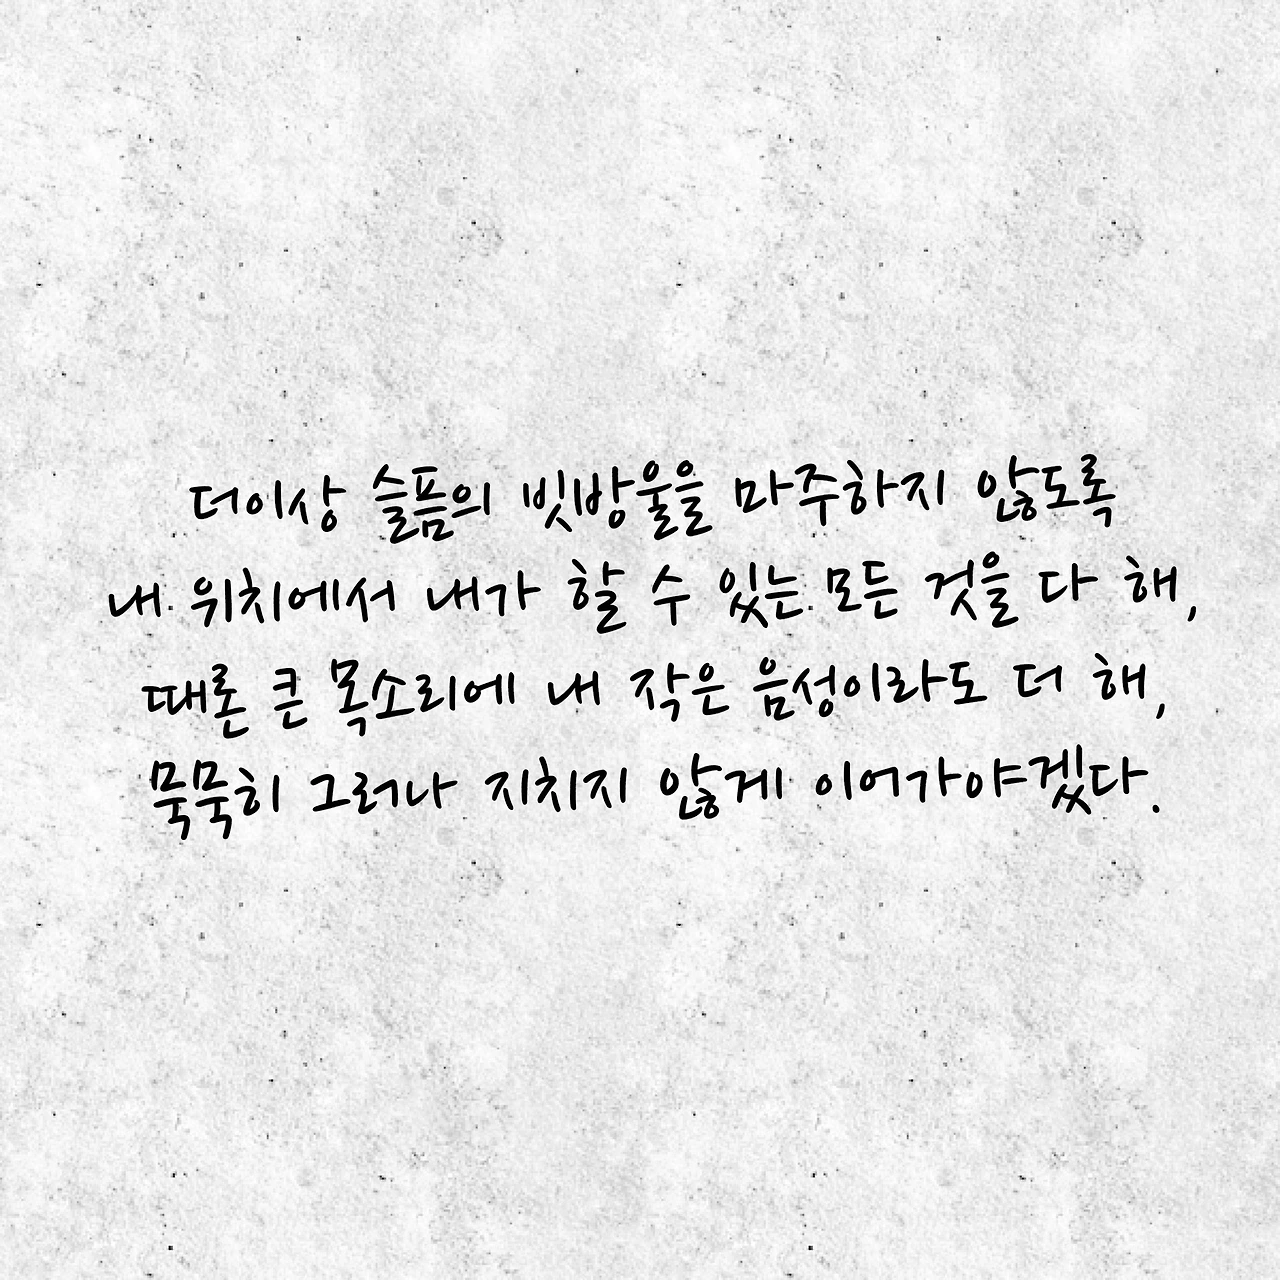 더이상 슬픔의 빗방울을 마주하지 않도록
내 위치에서 내가 할 수 있는 모든 것을 다 해,
때론 큰 목소리에 내 작은 음성이라도 더 해,
묵묵히 그러나 지치지 않게 이어가야겠다.